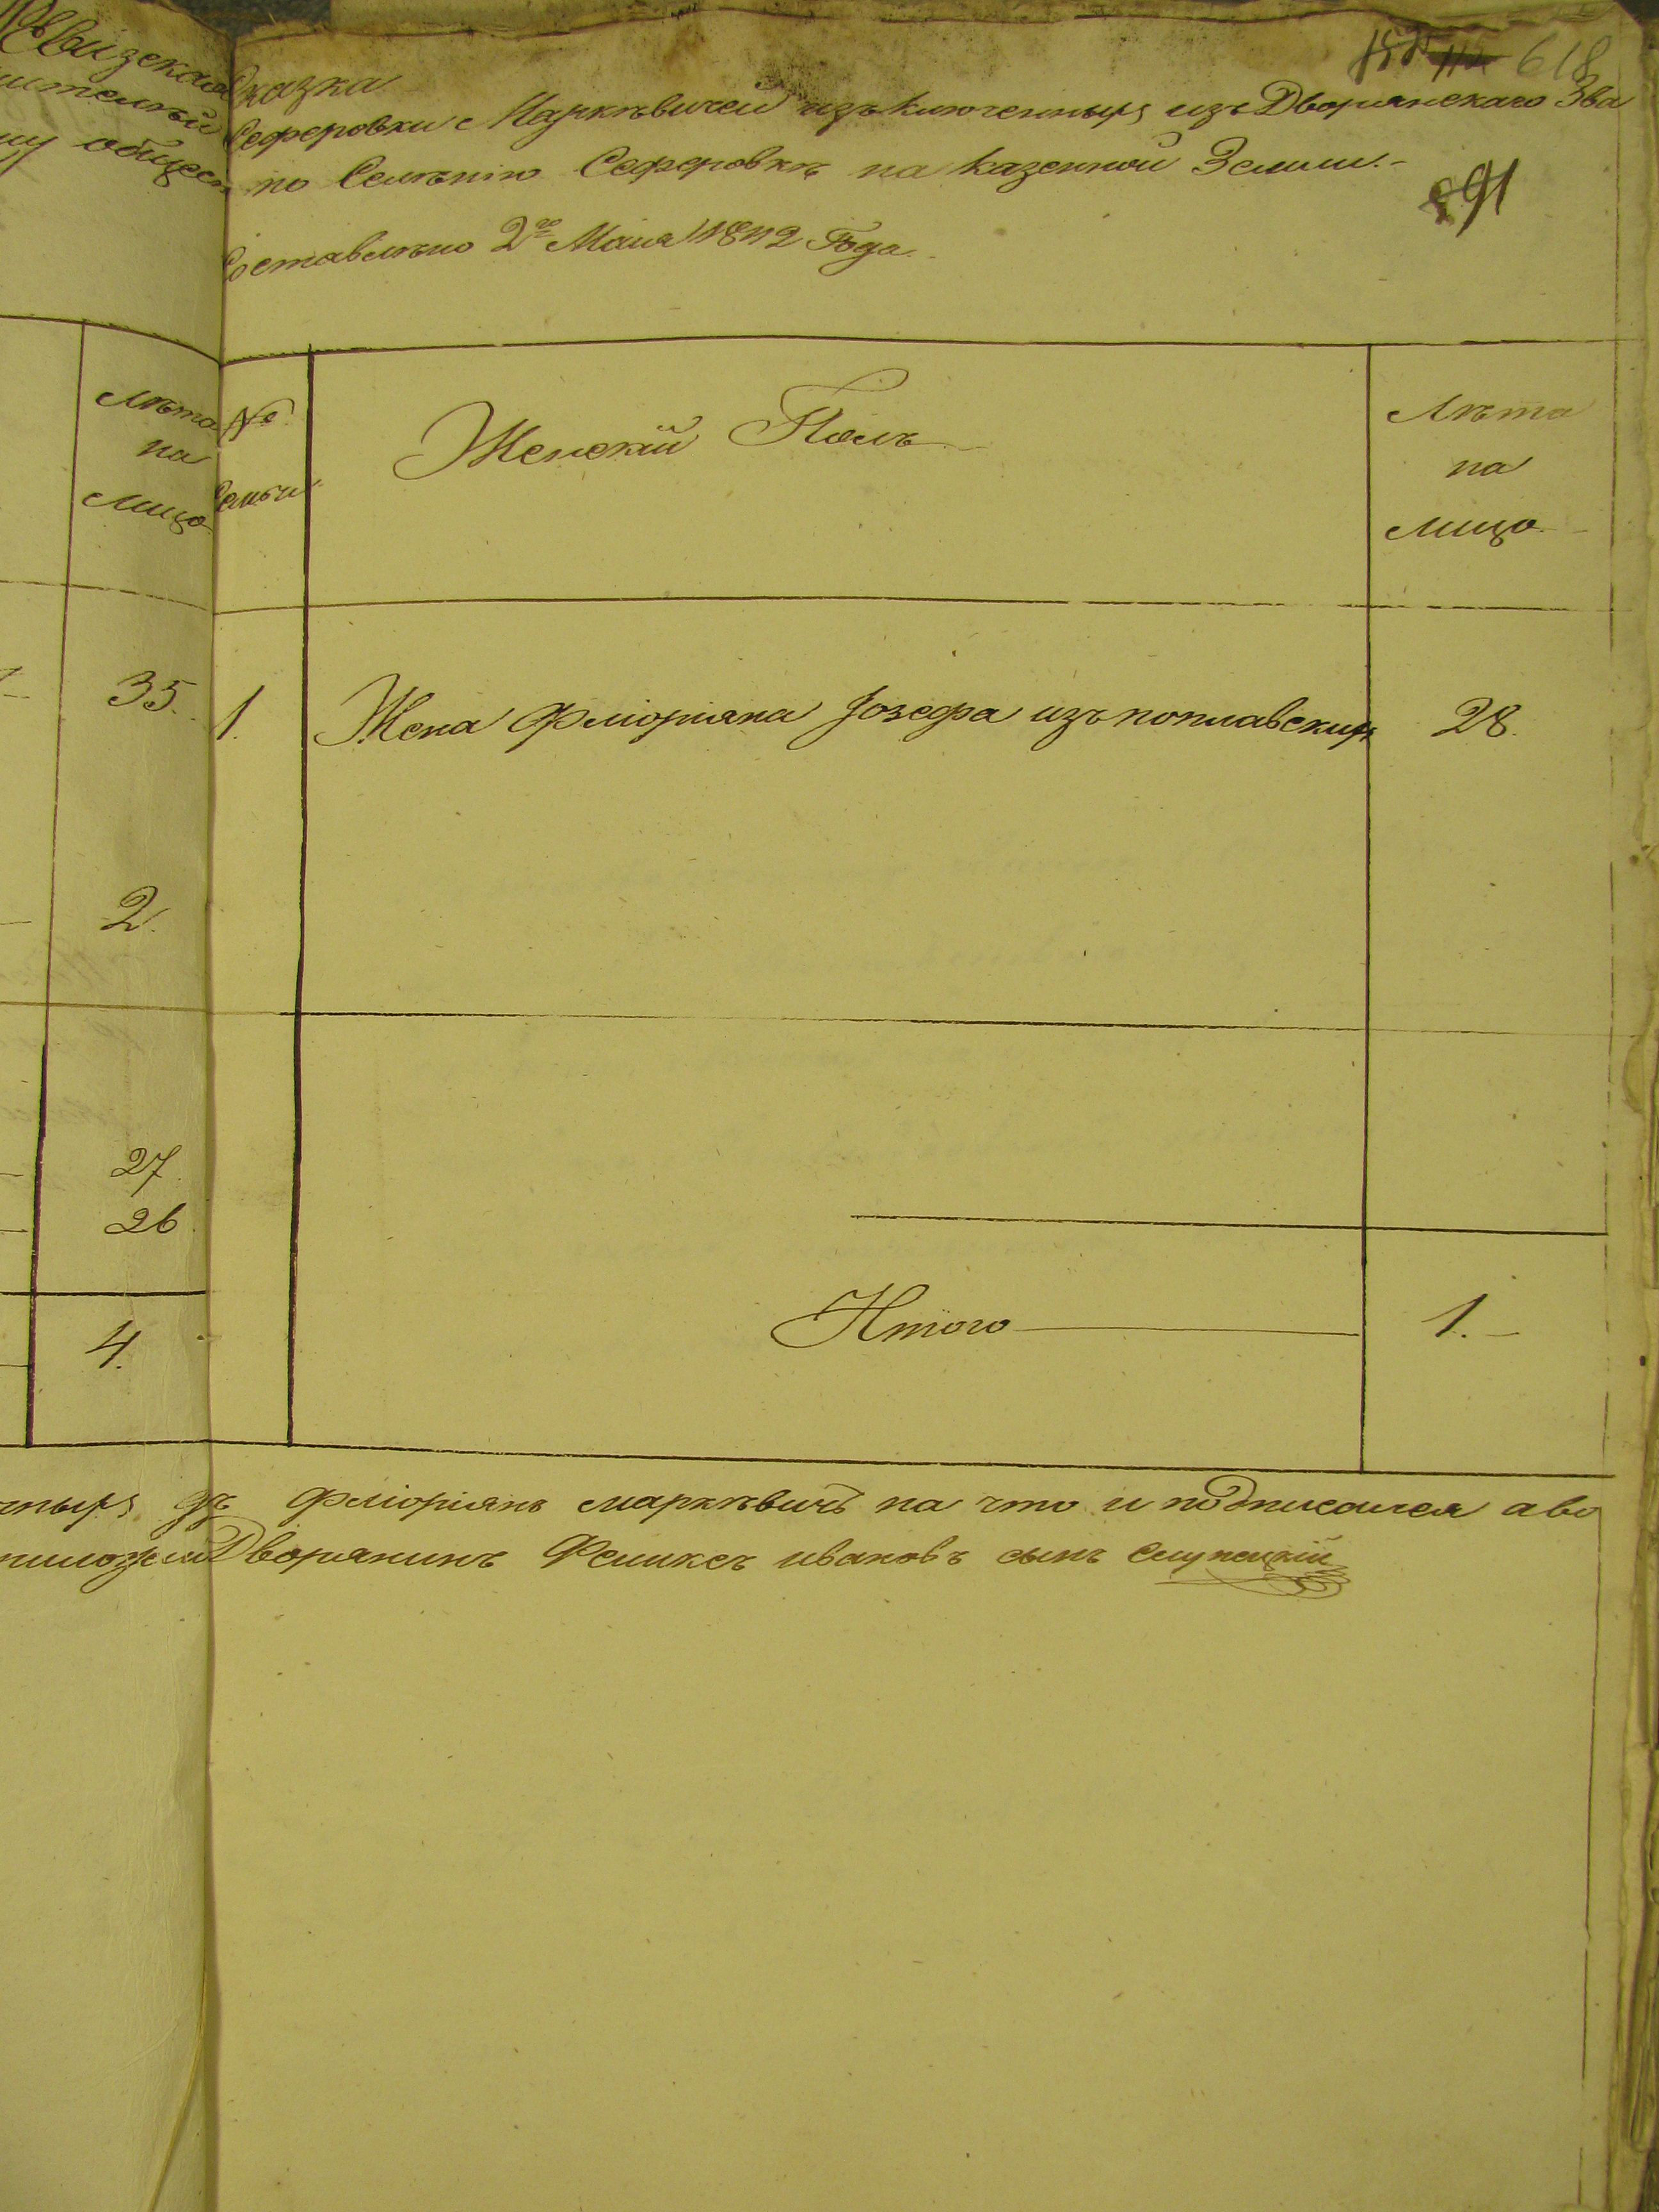 618
Ревизская Сказка
Сеферовки Маркѣвичей изъключенныхъ изъ Дворянскаго Зва
общес по Селѣнію Сеферовкѣ на казенной Земли.
891
Составлѣно 2го Мая 1842 Года
Лѣта на лицо
№ Семьи
Женскій Полъ
Лѣта на лицо
35.
1. Жена Флоріяна Іозефа изъ поплавскихъ 28.
2.
27
26
4.
Итого 1.
Флоріянъ маркѣвичъ на что и подписался а во
Дворянинъ Феликсъ ивановъ сынъ Слупецкій